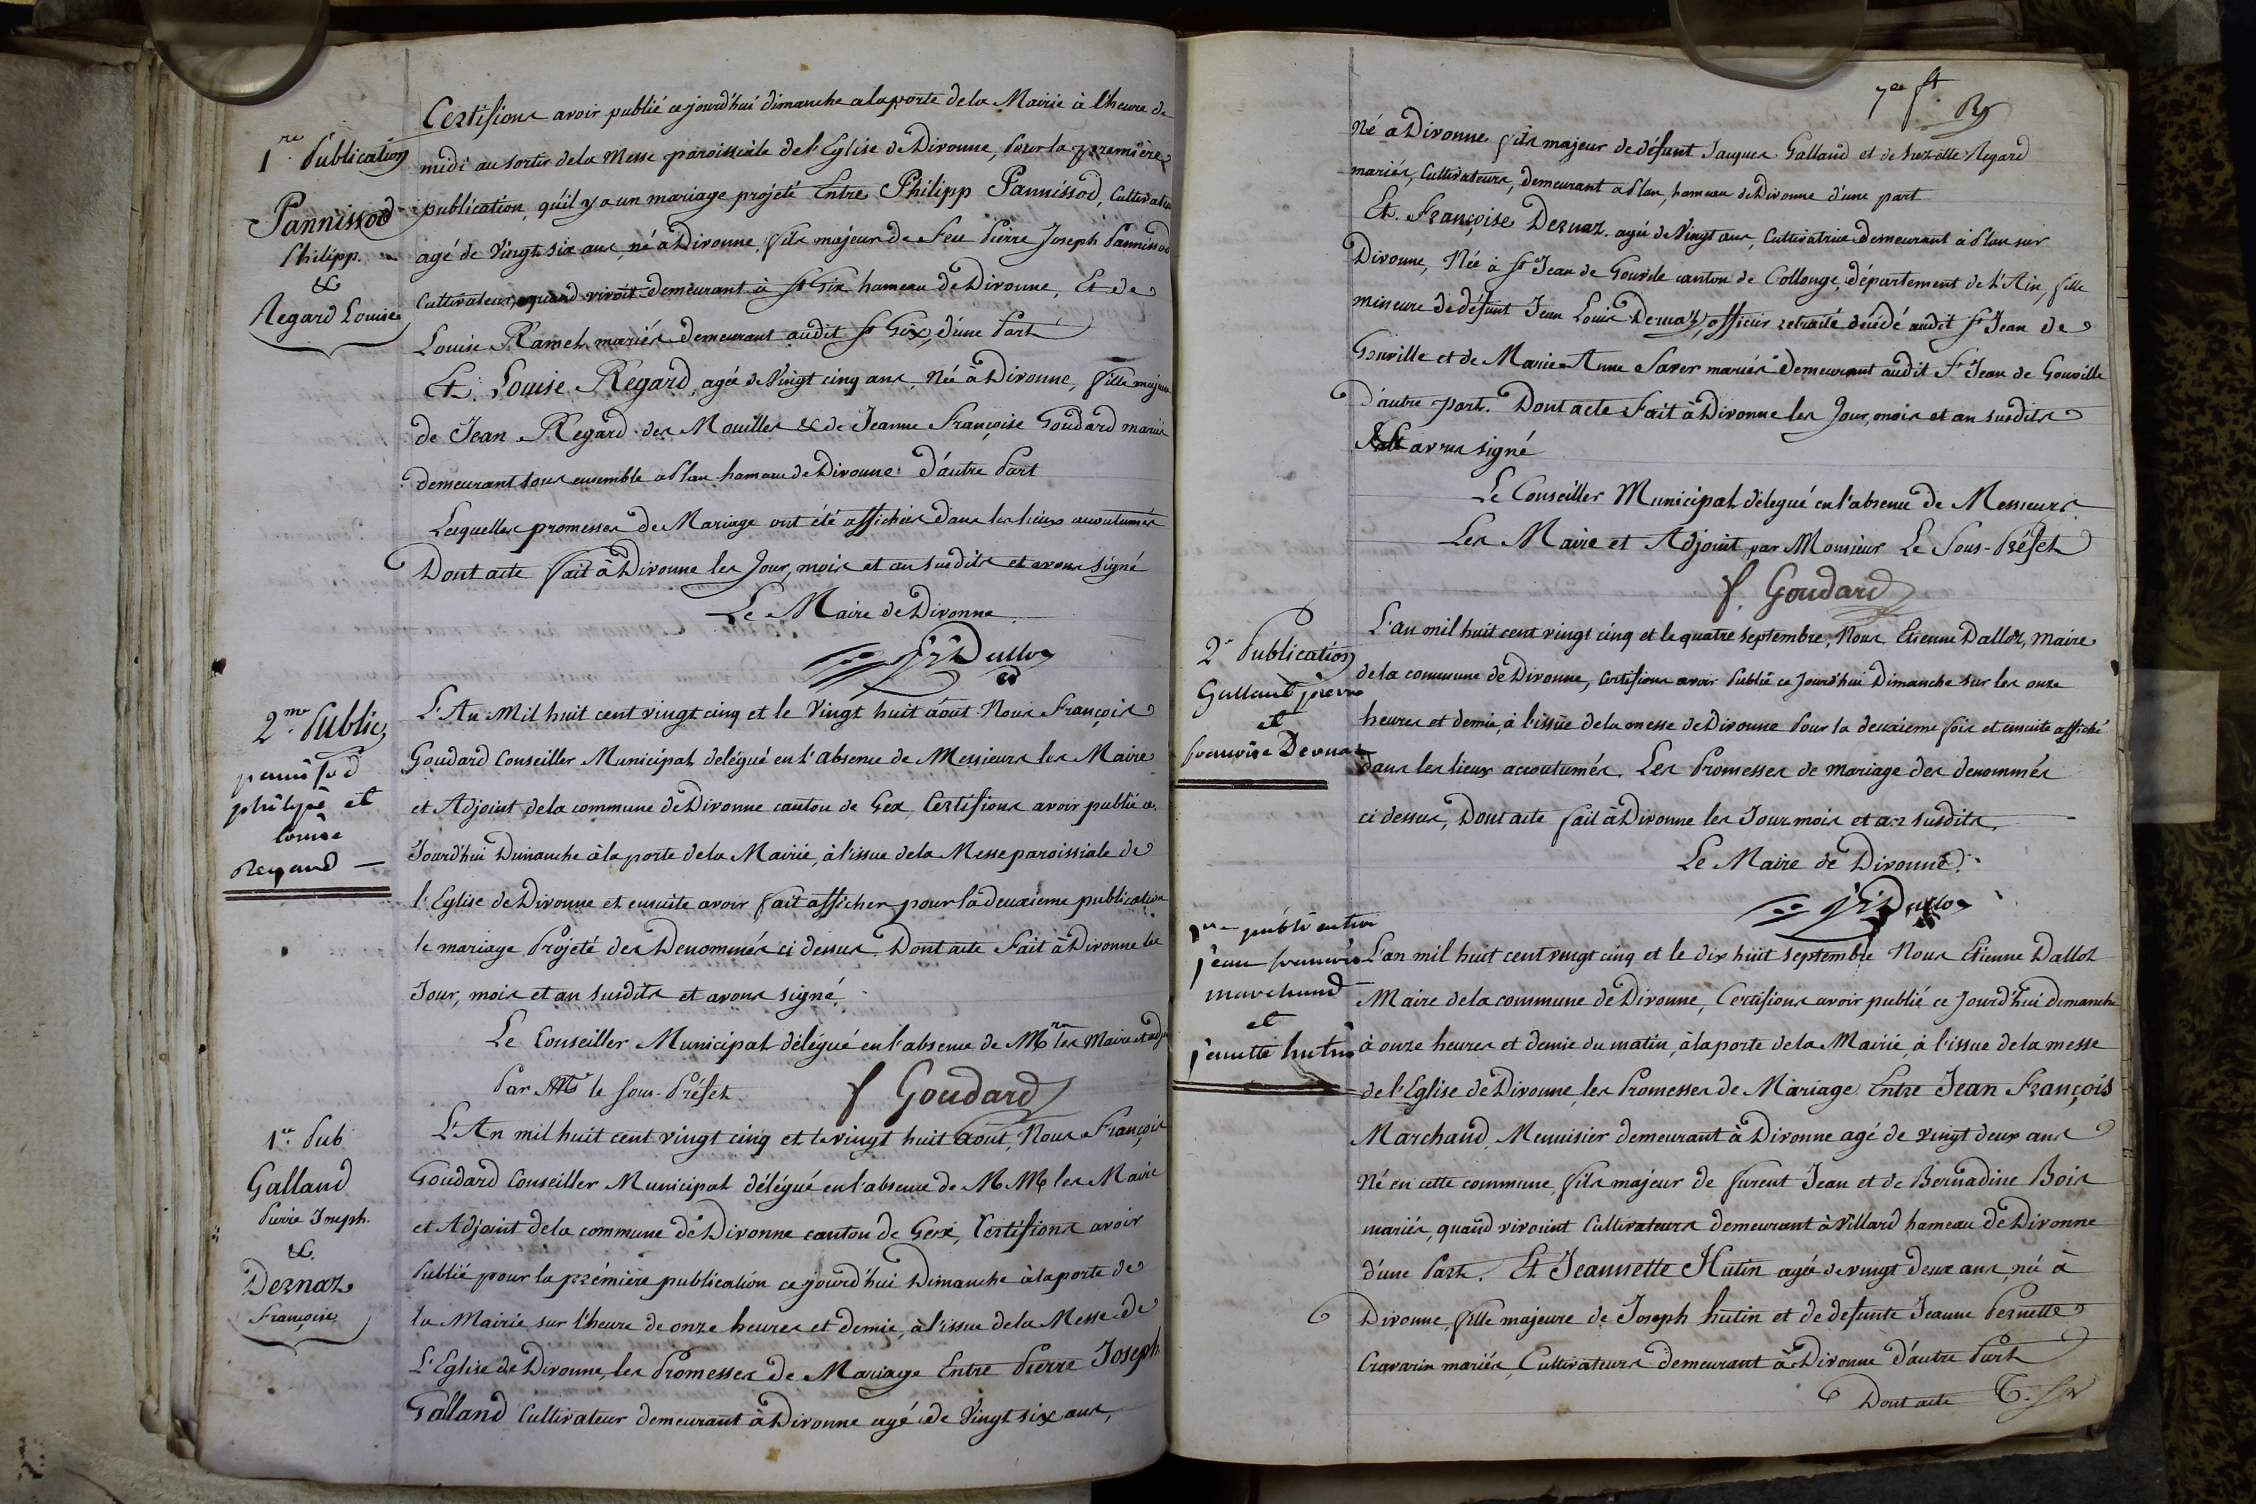 1re Publication
Pannissod
Philipp.
&
Regard Louise
Certifions avoir publié cejourd'hui dimanche a la porte de la Mairie à l'heure de
midi au sortir de la Messe paroissiale de l'Eglise de Divonne, pour la premiere
publication, qu'il y a un mariage projeté Entre Philipp Pannissod, Cultivateur
agé de vingt six ans, né à Divonne, fils majeur de Feu Pierre Joseph Pannissod
Cultivateur, quand vivoit demeurant à St Gix hameau de Divonne, Et de
Louise Ramel mariés demeurant audit St Gix, d'une Part
Et Louise Regard, agée de Vingt cinq ans, Née à Divonne, fille majeure
de Jean Regard des Mouilles & de Jeanne Françoise Goudard mariés
demeurant tous ensemble a Plan hameau de Divonne d'autre Part
Lesquelles promesses de Mariage ont été affichées dans les lieux accoutumés
Dont acte fait à Divonne les Jour, mois et an susdits et avons signé
Le Maire de Divonne
Dallox
2me Public
pannissod
philippe et
louise
Regard
L'An Mil huit cent vingt cinq et le Vingt huit aout Nous François
Goudard Conseiller Municipal délégué en l'absence de Messieurs les Maire
et Adjoint de la commune de Divonne canton de Gex, Certifions avoir publié ce
Jourd'hui Dimanche à la porte de la Mairie, à l'issue de la Messe paroissiale de
l'Eglise de Divonne et ensuite avoir fait afficher pour la deuxieme publication
le mariage Projeté des Denommés ci dessus. Dont acte Fait à Divonne les
Jour, mois et an susdits et avons signé
Le Conseiller Municipal délégué en l'absence de Mrs les Maire et adjt
Par Mr le Sous-Préfet
f Goudard
1re Pub
Galland
Pierre Joseph.
&
Dernaz
Françoise
L'An mil huit cent vingt cinq et le vingt huit Aout, Nous François
Goudard Conseiller Municipal délégué en l'absence de M M les Maire
et Adjoint de la commune de Divonne canton de Gex, Certifions avoir
Publié pour la prémière publication ce jourd'hui Dimanche à la porte de
la Mairie sur l'heure de onze heures et demie, à l'issue de la Messe de
L'Eglise de Divonne, les Promesses de Mariage Entre Pierre Joseph
Galland Cultivateur demeurant à Divonne agé de Vingt six ans,
7e ft
Né à Divonne fils majeur de défunt Jacques Galland et de Suzette Regard
mariés, Cultivateurs, demeurant a Plan, hameau de Divonne d'une part
Et. Françoise Dernaz. agée de Vingt ans, Cultivatrice demeurant à Plan sur
Divonne, Née à St Jean de Gouville canton de Collonge, département de l'Ain, fille
mineure de défunt Jean Louis Dernaz, officier retraité décédé audit St Jean de
Gouville et de Marie Anne Saver mariés demeurant audit St Jean de Gouville
D'autre part. Dont acte Fait à Divonne les Jour, mois et an susdits
avons signé
Le Conseiller Municipal délégué en l'absence de Messieurs
Les Maire et Adjoint par Monsieur Le Sous-Préfet
f. Goudard
2e Publication
Galland pierre
et
francoise Dernaz
L'an mil huit cent vingt cinq et le quatre septembre, Nous Etienne Dallox, Maire
de la commune de Divonne, Certifions avoir Publié ce Jourd'hui Dimanche sur les onze
heures et demie, à l'issüe de la messe de Divonne Pour la deuxieme fois et ensuite affiché
dans les lieux accoutumés. Les Promesses de mariage des denommés
ci dessus, Dont acte fait à Divonne les Jour mois et an susdits.
Le Maire de Divonne
Dallox
1re publication
jean francois
marchand
et
jenette hutin
L'an mil huit cent vingt cinq et le dix huit septembre Nous Etienne Dallox
Maire de la commune de Divonne, Certifions avoir publié ce Jourd'hui dimanche
à onze heures et demie du matin, à la porte de la Mairie, à l'issue de la messe
de l'Eglise de Divonne, les Promesses de Mariage Entre Jean François
Marchand, Menuisier demeurant à Divonne agé de vingt deux ans
Né en cette commune, fils majeur de furent Jean et de Bernadine Bois
mariés, quand vivoient Cultivateurs demeurant à Villard hameau de Divonne
d'une Part. Et Jeannette Hutin agée de vingt deux ans, né à
Divonne, fille majeure de Joseph hutin et de defunte Jeanne Pernette
Cravarin mariés, Cultivateurs demeurant à Divonne d'autre Part
Dont acte